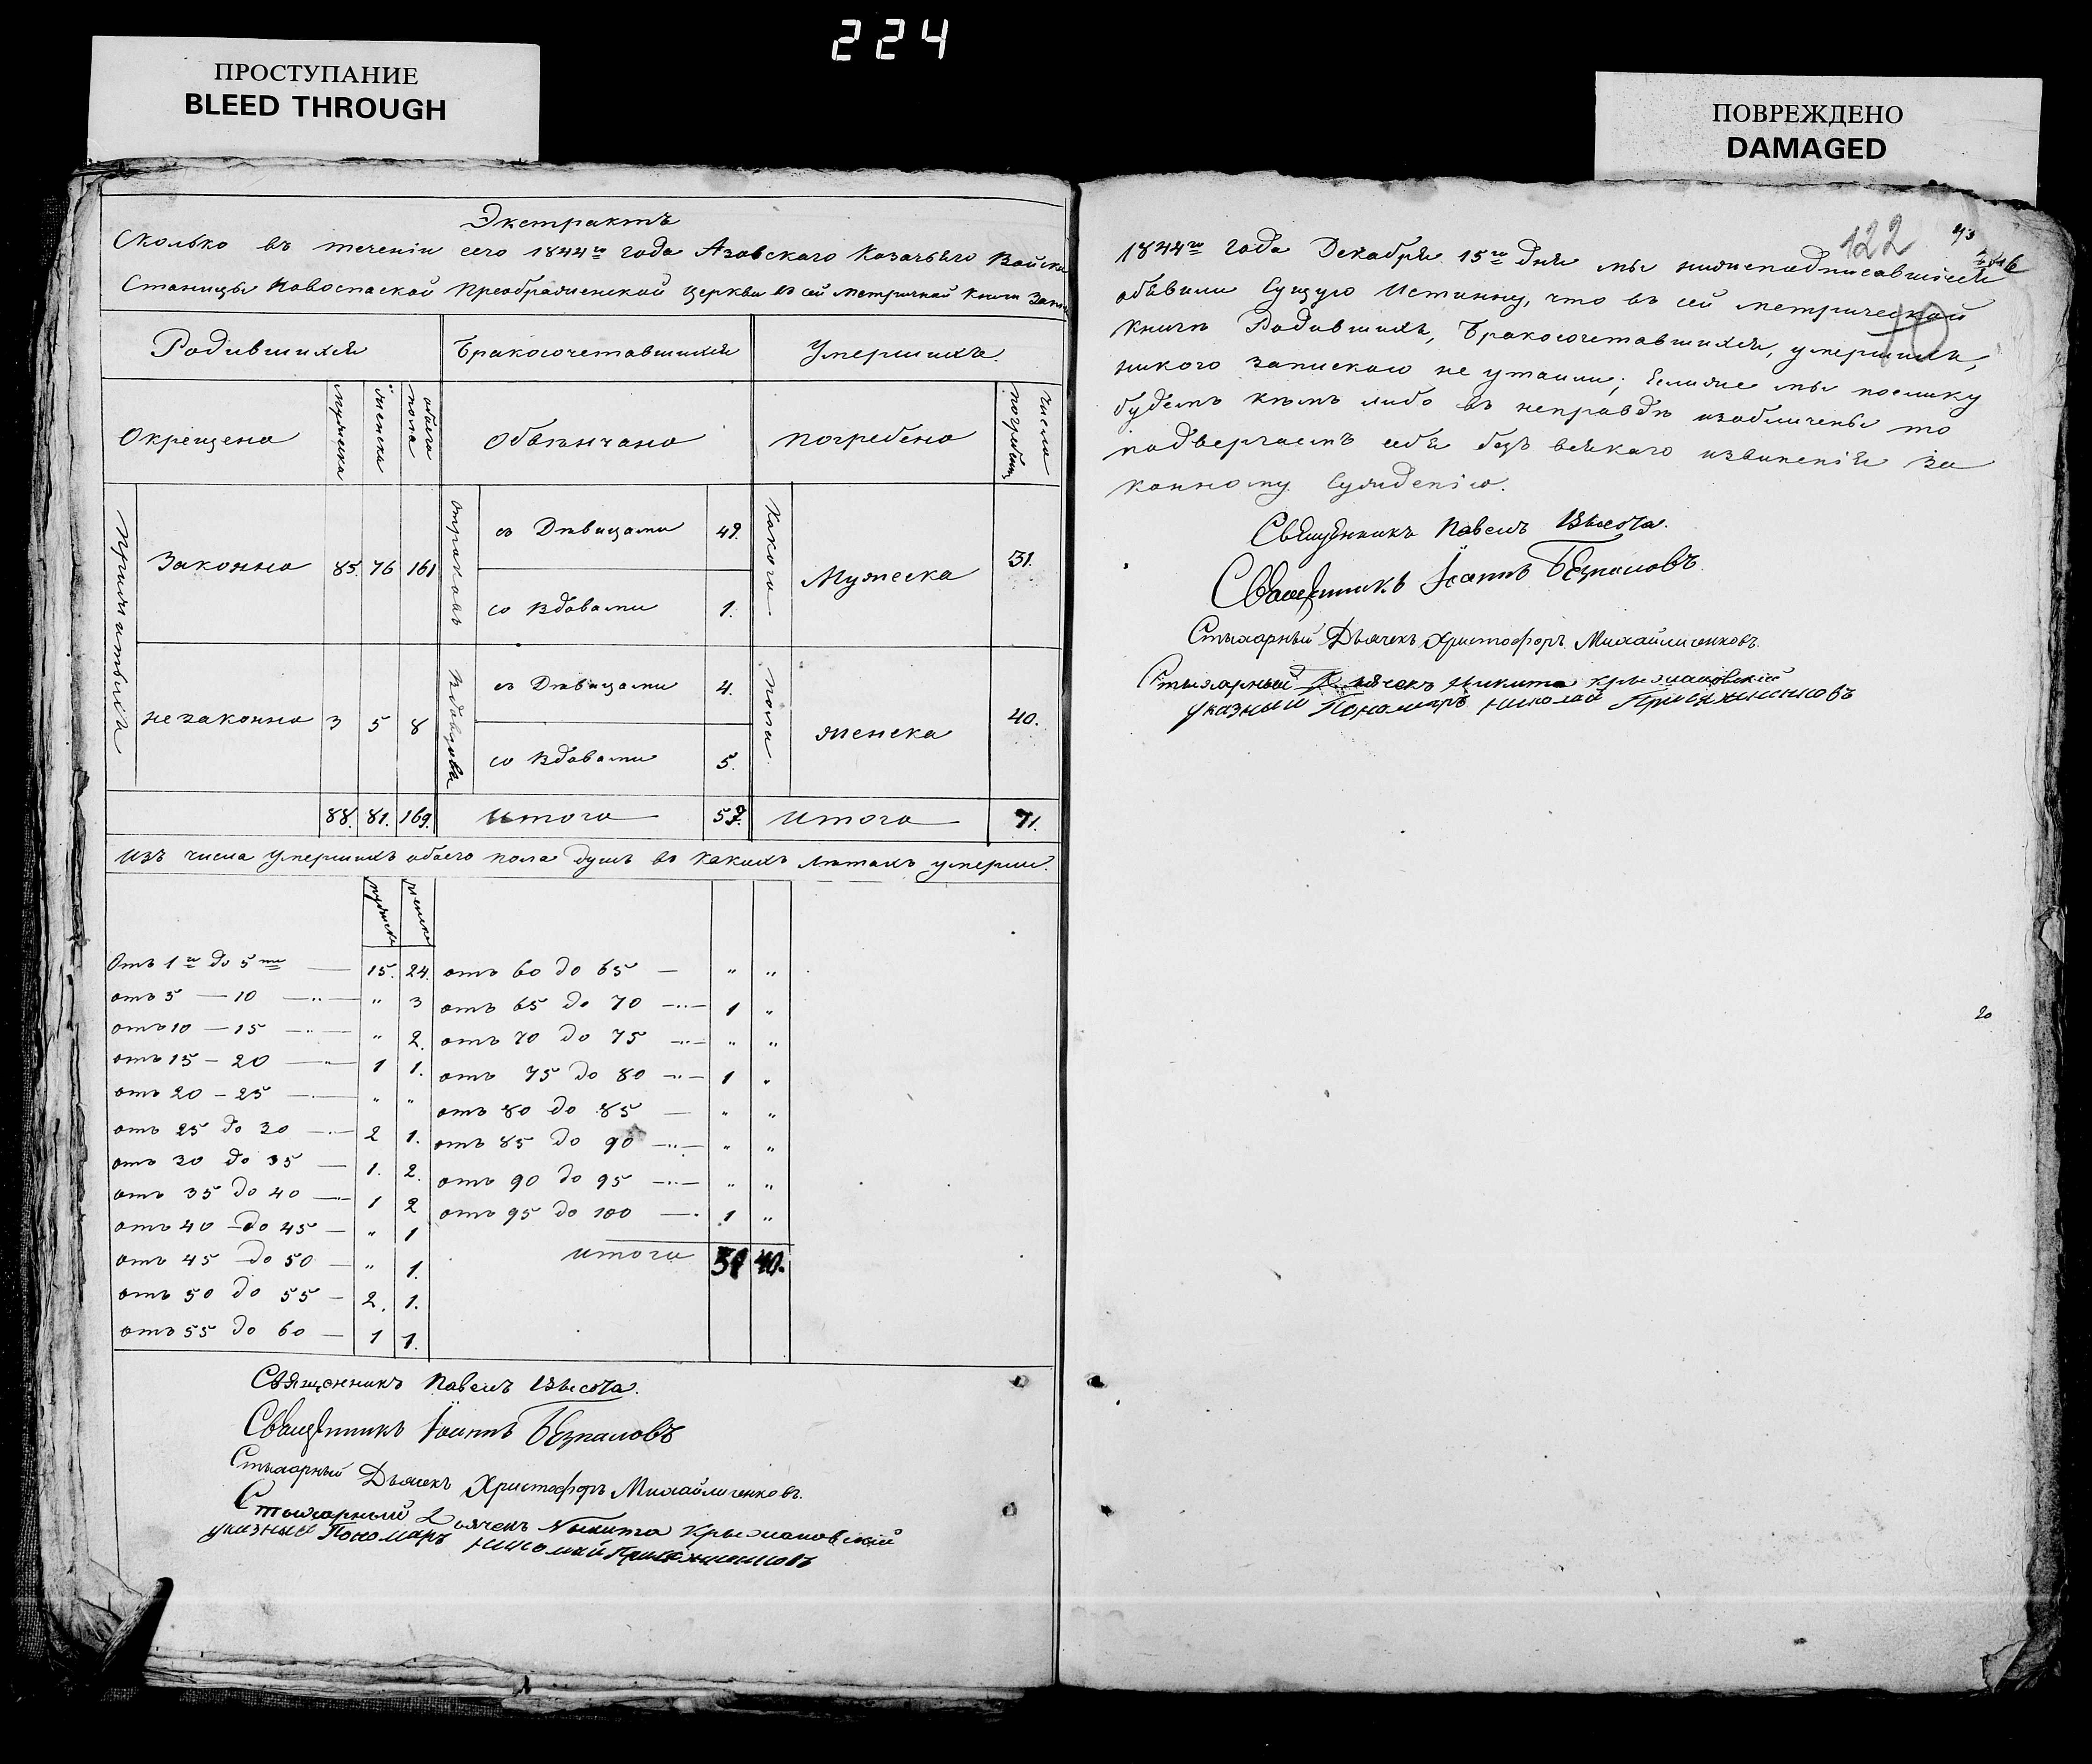 224
ПРОСТУПАНИЕ
BLEED THROUGH
ПОВРЕЖДЕНО
DAMAGED
Экстрактъ
Сколько въ теченіи сего 1844го года Азовскаго Казачьяго Войска
Станицы Новоспаской Преображенской церкви въ сей метричной книги
Родившихся Бракосочетавшихся Умершихъ
Окрещено мужеска женска обоего пола Обвѣнчано погребено число
Законно 85. 76 161 отраковъ съ Дѣвицами 49. Какого Мужеска 31.
со Вдовами 1.
не законно 3 5 8 Вдовцовъ съ Дѣвицами 4. пола женска 40.
со Вдовами 5.
88. 81. 169. Итого Итого 71.
Изъ числа умершихъ обоего пола душъ въ какихъ лѣтахъ умерли.
мужеска женска
Отъ 1го до 5ти — 15. 24. отъ 60 до 65 — " "
отъ 5 — 10 — " 3 отъ 65 до 70 — 1 "
отъ 10 — 15 — " 2. отъ 70 до 75 — " "
отъ 15 — 20 — 1 1. отъ 75 до 80 — 1 "
отъ 20 — 25 — " " отъ 80 до 85 — " "
отъ 25 до 30 — 2 1. отъ 85 до 90 — " "
отъ 30 до 35 — 1. 2. отъ 90 до 95 — " "
отъ 35 до 40 — 1 2 отъ 95 до 100 — 1 "
отъ 40 до 45 — " 1
отъ 45 до 50 — " 1. итого 31 40.
отъ 50 до 55 — 2. 1.
отъ 55 до 60 — 1 1.
Священникъ Павелъ Высота.
Священникъ Іоаннъ Безпаловъ
Стихарный Дьячекъ Христофоръ Михайличенковъ.
Стихарный Дьячекъ Никита Крыжановскій
указный Пономарь Николай
122
1844го года Декабря 15го дня мы нижеподписавшіеся
объвили Сущую Истинну, что въ сей метрической
книгѣ Родившихъ, Бракосочетавшихся, умершихъ,
никого запискою не утаили; Еслиже мы поелику
будемъ кѣмъ либо въ неправдѣ изобличены то
подвергаемъ себя безъ всякаго извиненія за
конному Сужденію.
10
Священникъ Павелъ Высота.
Священникъ Іоаннъ Безпаловъ
Стихарный Дьячекъ Христофоръ Михайличенковъ.
Стихарный Дьячекъ Никита Крыжановскій
указный Пономарь Николай
20